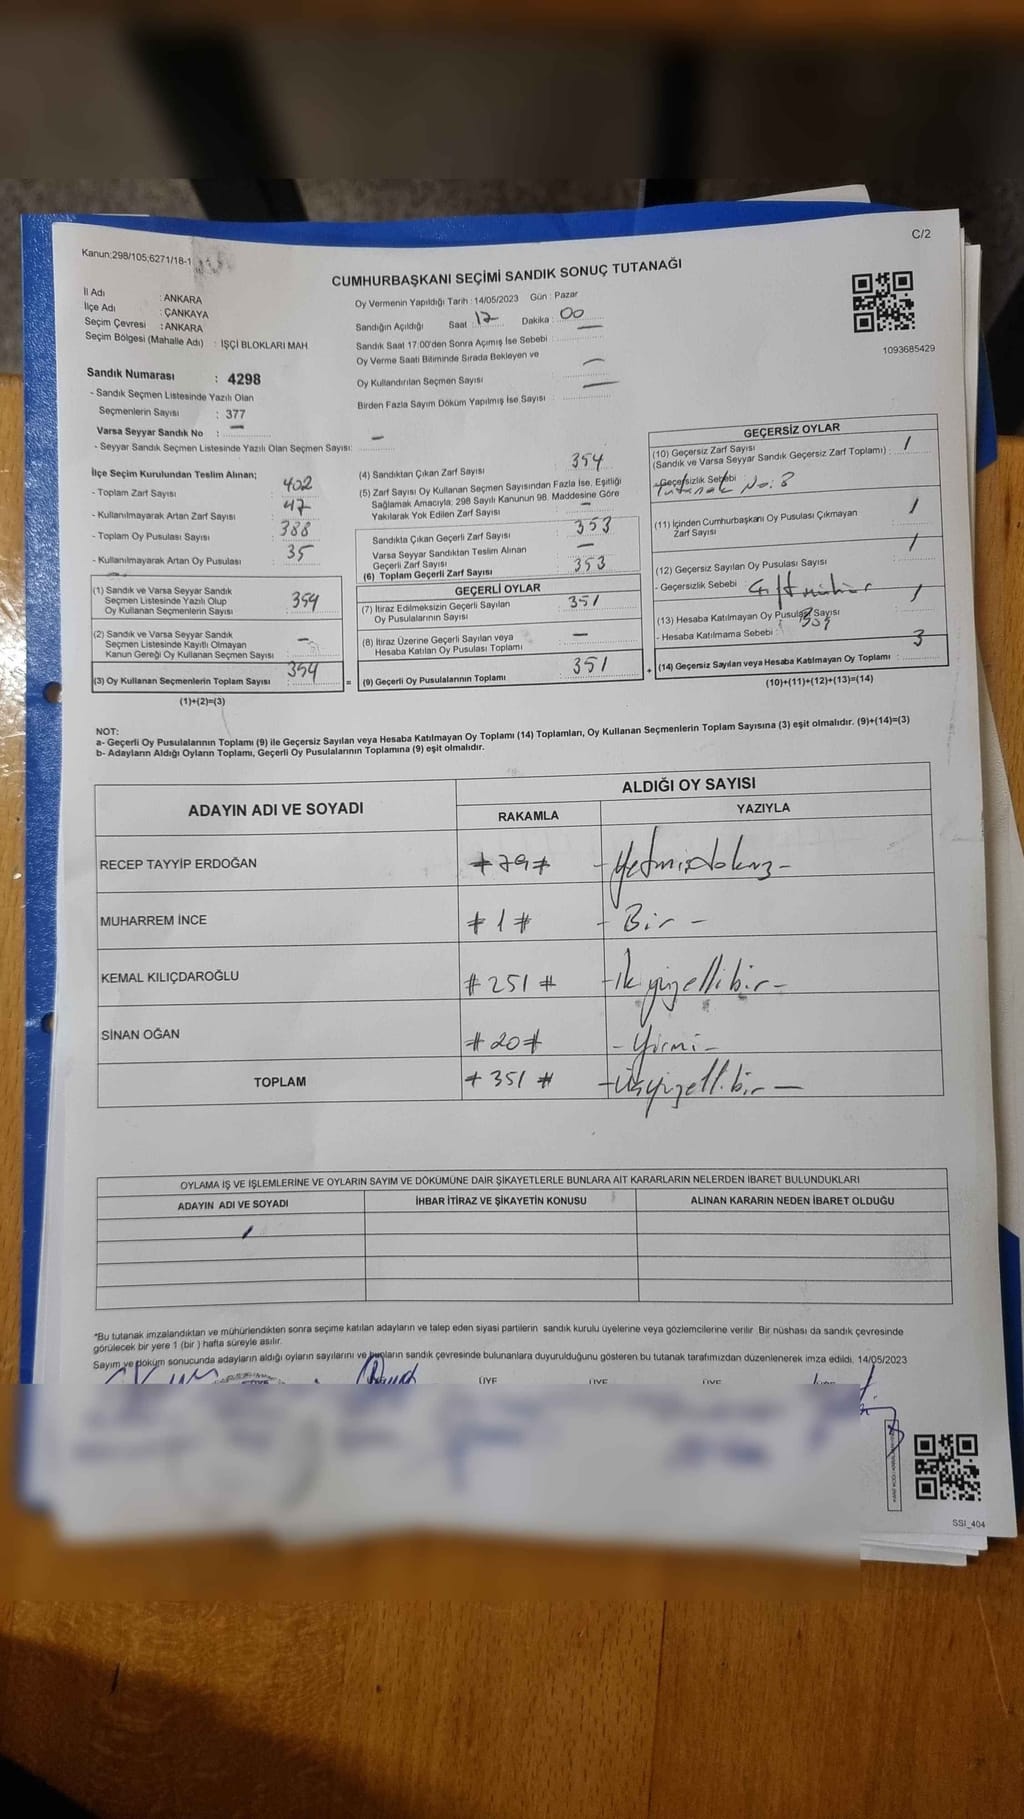 C/2
Kanun;298/105;6271/18-1
CUMHURBAŞKANI SEÇİMİ SANDIK SONUÇ TUTANAĞI
İl Adı : ANKARA
İlçe Adı : ÇANKAYA
Seçim Çevresi : ANKARA
Seçim Bölgesi (Mahalle Adı) : İŞÇİ BLOKLARI MAH
Sandık Numarası : 4298
- Sandık Seçmen Listesinde Yazılı Olan
Seçmenlerin Sayısı : 377
Varsa Seyyar Sandık No : —
- Seyyar Sandık Seçmen Listesinde Yazılı Olan Seçmen Sayısı: —
Oy Vermenin Yapıldığı Tarih : 14/05/2023 Gün : Pazar
Sandığın Açıldığı Saat : 17 Dakika : 00
Sandık Saat 17:00'den Sonra Açımış İse Sebebi : —
Oy Verme Saati Bitiminde Sırada Bekleyen ve
Oy Kullandırılan Seçmen Sayısı : —
Birden Fazla Sayım Döküm Yapılmış İse Sayısı : —
1093685429
İlçe Seçim Kurulundan Teslim Alınan;
- Toplam Zarf Sayısı : 402
- Kullanılmayarak Artan Zarf Sayısı : 47
- Toplam Oy Pusulası Sayısı : 388
- Kullanılmayarak Artan Oy Pusulası : 35
(1) Sandık ve Varsa Seyyar Sandık
Seçmen Listesinde Yazılı Olup
Oy Kullanan Seçmenlerin Sayısı : 354
(2) Sandık ve Varsa Seyyar Sandık
Seçmen Listesinde Kayıtlı Olmayan
Kanun Gereği Oy Kullanan Seçmen Sayısı : —
(3) Oy Kullanan Seçmenlerin Toplam Sayısı : 354
(1)+(2)=(3)
(4) Sandıktan Çıkan Zarf Sayısı : 354
(5) Zarf Sayısı Oy Kullanan Seçmen Sayısından Fazla İse, Eşitliği
Sağlamak Amacıyla; 298 Sayılı Kanunun 98. Maddesine Göre
Yakılarak Yok Edilen Zarf Sayısı : —
Sandıkta Çıkan Geçerli Zarf Sayısı : 353
Varsa Seyyar Sandıktan Teslim Alınan
Geçerli Zarf Sayısı : —
(6) Toplam Geçerli Zarf Sayısı : 353
GEÇERLİ OYLAR
(7) İtiraz Edilmeksizin Geçerli Sayılan
Oy Pusulalarının Sayısı : 351
(8) İtiraz Üzerine Geçerli Sayılan veya
Hesaba Katılan Oy Pusulası Toplamı : —
= (9) Geçerli Oy Pusulalarının Toplamı : 351
GEÇERSİZ OYLAR
(10) Geçersiz Zarf Sayısı
(Sandık ve Varsa Seyyar Sandık Geçersiz Zarf Toplamı) : 1
-Geçersizlik Sebebi
Tutanak No: 8
(11) İçinden Cumhurbaşkanı Oy Pusulası Çıkmayan
Zarf Sayısı : 1
(12) Geçersiz Sayılan Oy Pusulası Sayısı : 1
- Geçersizlik Sebebi : Çift mühür
(13) Hesaba Katılmayan Oy Pusulası Sayısı
- Hesaba Katılmama Sebebi :
+ (14) Geçersiz Sayılan veya Hesaba Katılmayan Oy Toplamı : 3
(10)+(11)+(12)+(13)=(14)
NOT:
a- Geçerli Oy Pusulalarının Toplamı (9) ile Geçersiz Sayılan veya Hesaba Katılmayan Oy Toplamı (14) Toplamları, Oy Kullanan Seçmenlerin Toplam Sayısına (3) eşit olmalıdır. (9)+(14)=(3)
b- Adayların Aldığı Oyların Toplamı, Geçerli Oy Pusulalarının Toplamına (9) eşit olmalıdır.
ADAYIN ADI VE SOYADI ALDIĞI OY SAYISI
RAKAMLA YAZIYLA
RECEP TAYYİP ERDOĞAN # 79 # - Yetmişdokuz -
MUHARREM İNCE # 1 # - Bir -
KEMAL KILIÇDAROĞLU # 251 # - İkiyüzellibir -
SİNAN OĞAN # 20 # - Yirmi -
TOPLAM # 351 # - Üçyüzellibir -
OYLAMA İŞ VE İŞLEMLERİNE VE OYLARIN SAYIM VE DÖKÜMÜNE DAİR ŞİKAYETLERLE BUNLARA AİT KARARLARIN NELERDEN İBARET BULUNDUKLARI
ADAYIN ADI VE SOYADI İHBAR İTİRAZ VE ŞİKAYETİN KONUSU ALINAN KARARIN NEDEN İBARET OLDUĞU
*Bu tutanak imzalandıktan ve mühürlendikten sonra seçime katılan adayların ve talep eden siyasi partilerin sandık kurulu üyelerine veya gözlemcilerine verilir Bir nüshası da sandık çevresinde
görülecek bir yere 1 (bir ) hafta süreyle asılır.
Sayım ve döküm sonucunda adayların aldığı oyların sayılarını ve bunların sandık çevresinde bulunanlara duyurulduğunu gösteren bu tutanak tarafımızdan düzenlenerek imza edildi. 14/05/2023
ÜYE ÜYE ÜYE
SSI_404